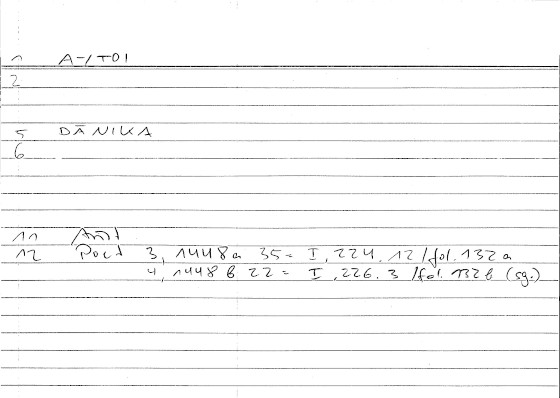 1 A-/TOI
2
5 DĀNIKA
6
11 Arist.
12 Poet 3, 1448a 35 = I, 224. 12 / fol. 132a
4, 1448b 22 = I, 226. 3 / fol. 132b (sg.)